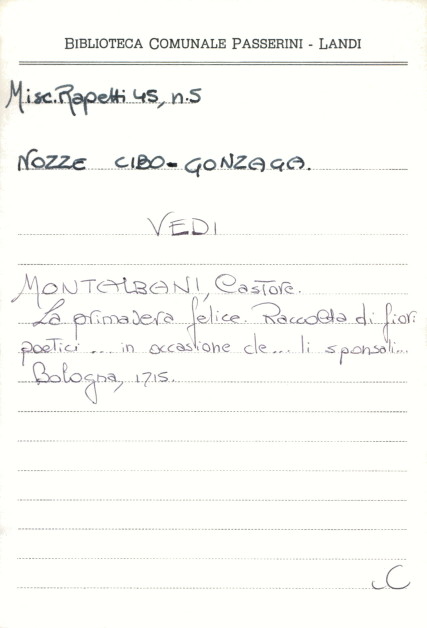 BIBLIOTECA COMUNALE PASSERINI - LANDI
Misc. Rapetti 45, n.5
NOZZE CIBO-GONZAGA.
VEDI
MONTALBANI, Castore.
La primavera felice. Raccolta di fiori
poetici ... in occasione de... li sponsali...
Bologna, 1715.